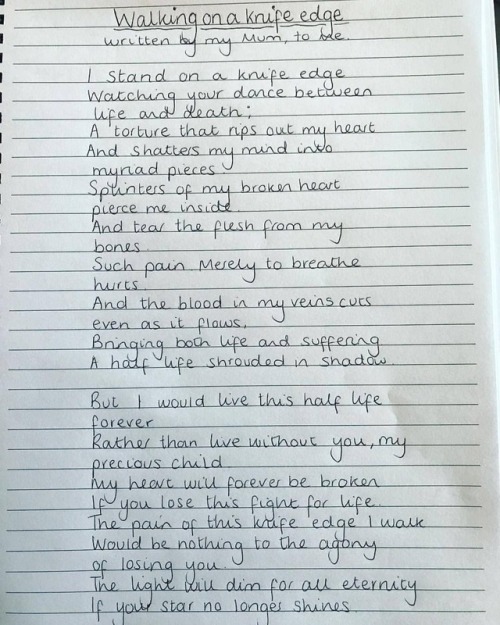 Walking on a knife edge
written by my Mum, to me.
I stand on a knife edge
Watching your dance between
life and death;
A torture that rips out my heart
And shatters my mind into
myriad pieces
Splinters of my broken heart
pierce me inside.
And tear the flesh from my
bones
Such pain Merely to breathe
hurts.
And the blood in my veins cuts
even as it flows.
Bringing both life and suffering
A half life shrouded in shadow.
But I would live this half life
forever
Rather than live without you, my
precious child.
My heart will forever be broken
If you lose this fight for life.
The pain of this knife edge I walk
Would be nothing to the agony
of losing you.
The light will dim for all eternity
If your star no longer shines.